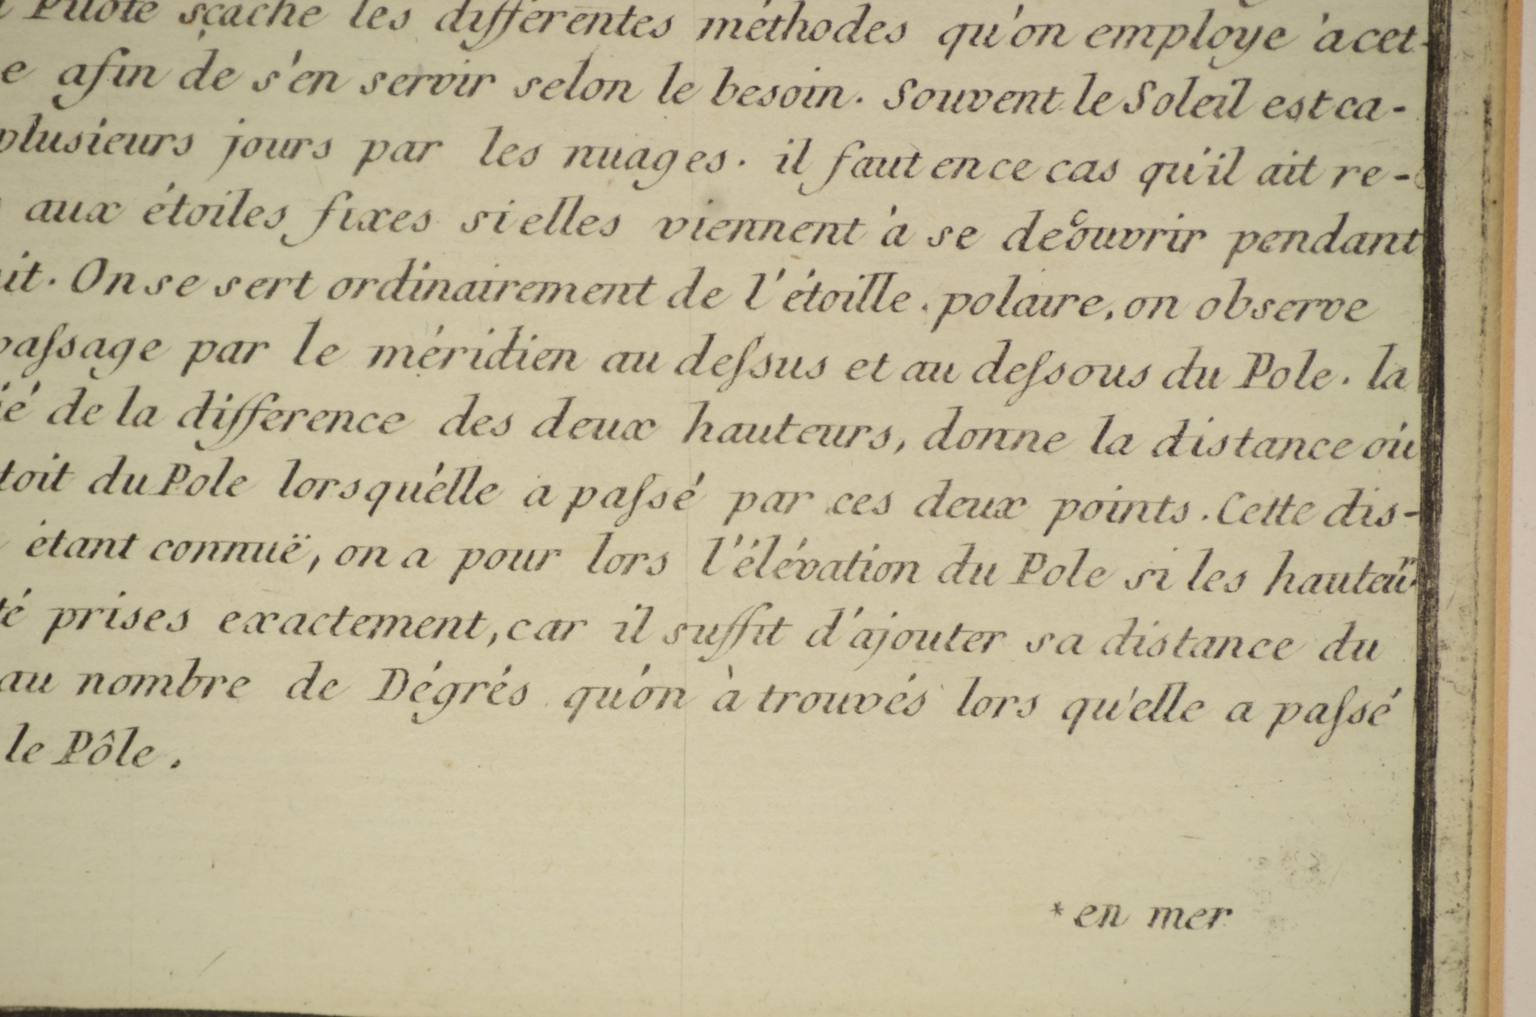 Pilote sçache les différentes méthodes qu'on employe à cet-
e afin de s'en servir selon le besoin. Souvent le Soleil est ca-
plusieurs jours par les nuages. il faut en ce cas qu'il ait re-
aux étoiles fixes si elles viennent à se decouvrir pendant
it. On se sert ordinairement de l'étoille polaire, on observe
passage par le méridien au dessus et au dessous du Pole. la
ié de la difference des deux hauteurs, donne la distance où
toit du Pole lorsqu'elle a passé par ces deux points. Cette dis-
étant connuë, on a pour lors l'élévation du Pole si les hauteurs
té prises exactement, car il suffit d'ajouter sa distance du
au nombre de Dégrés qu'on à trouvés lors qu'elle a passé
le Pôle.
* en mer